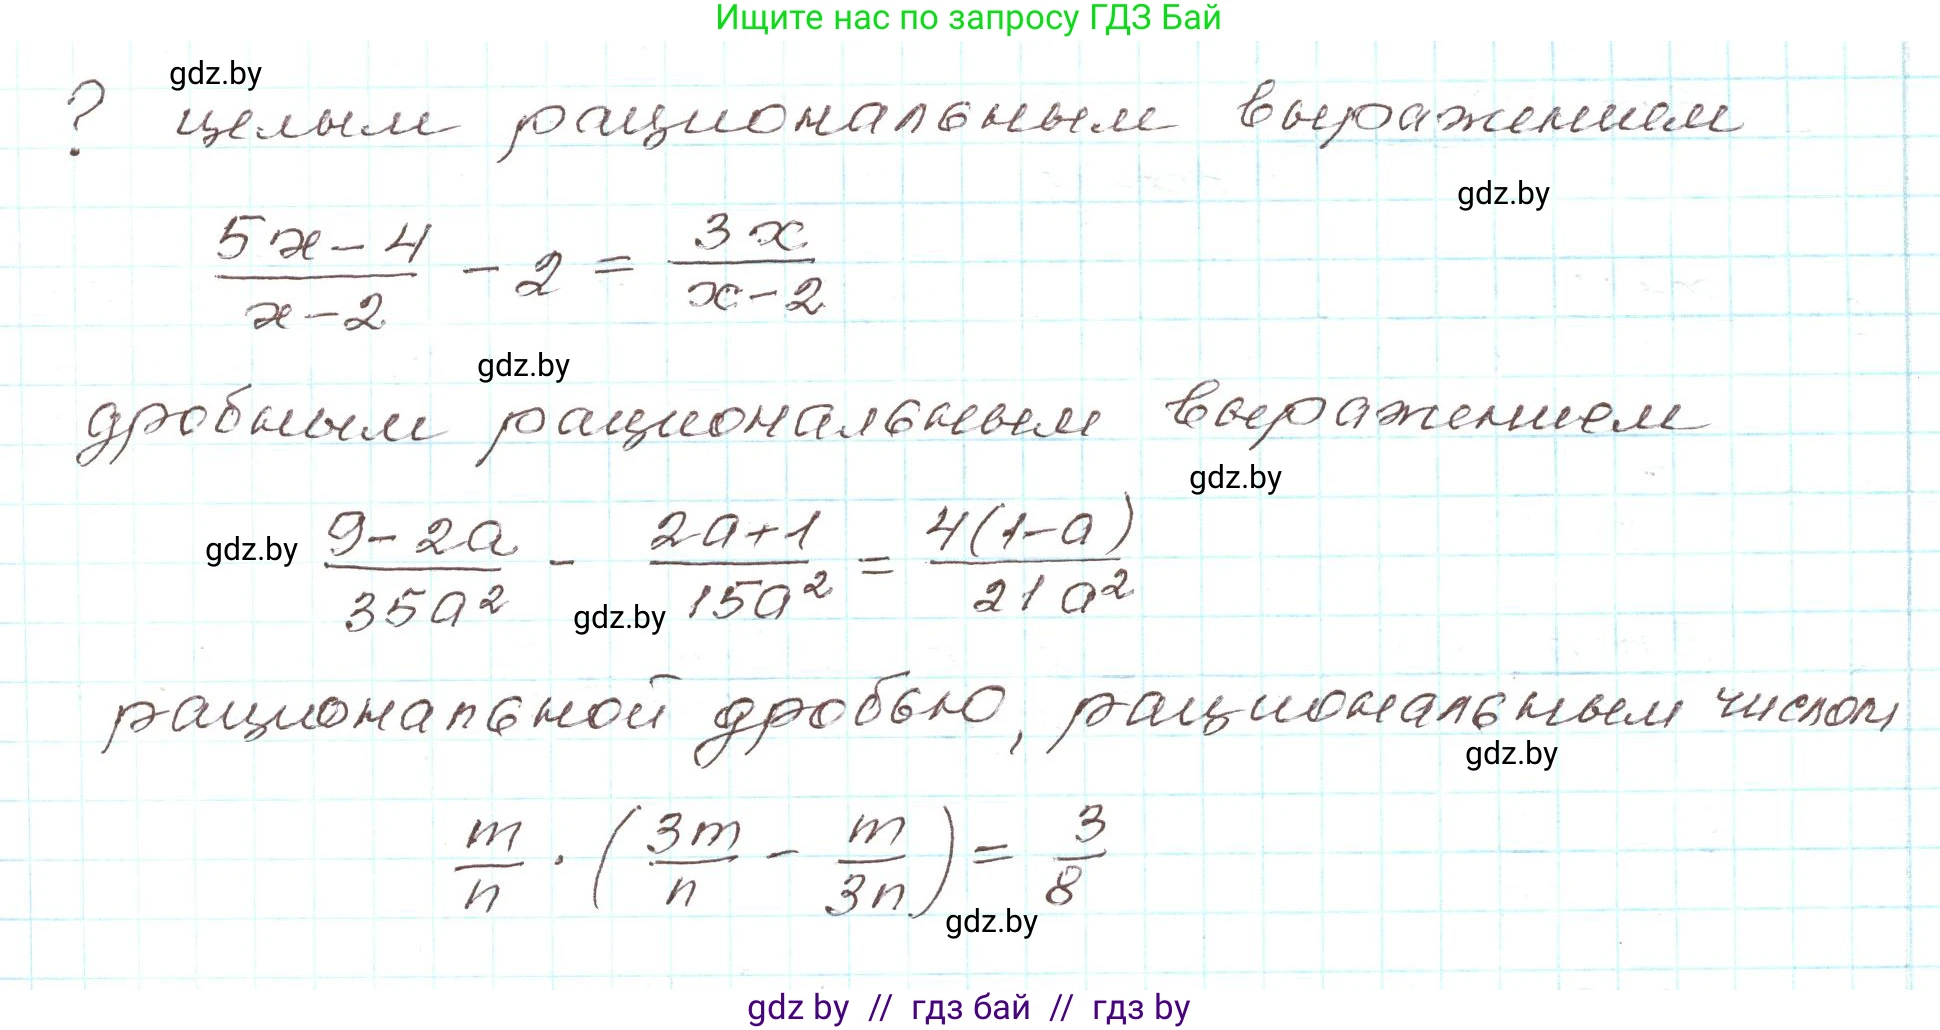 Ищите нас по запросу ГДЗ Бай
gdz.by
? целым рациональным выражением
gdz.by
(5x-4)/(x-2) - 2 = 3x/(x-2)
gdz.by
дробным рациональным выражением
gdz.by
gdz.by (9-2a)/(35a²) - (2a+1)/(15a²) = 4(1-a)/(21a²)
gdz.by
рациональной дробью, рациональным числом
gdz.by
m/n · (3m/n - m/3n) = 3/8
gdz.by
gdz by // гдз бай // гдз by